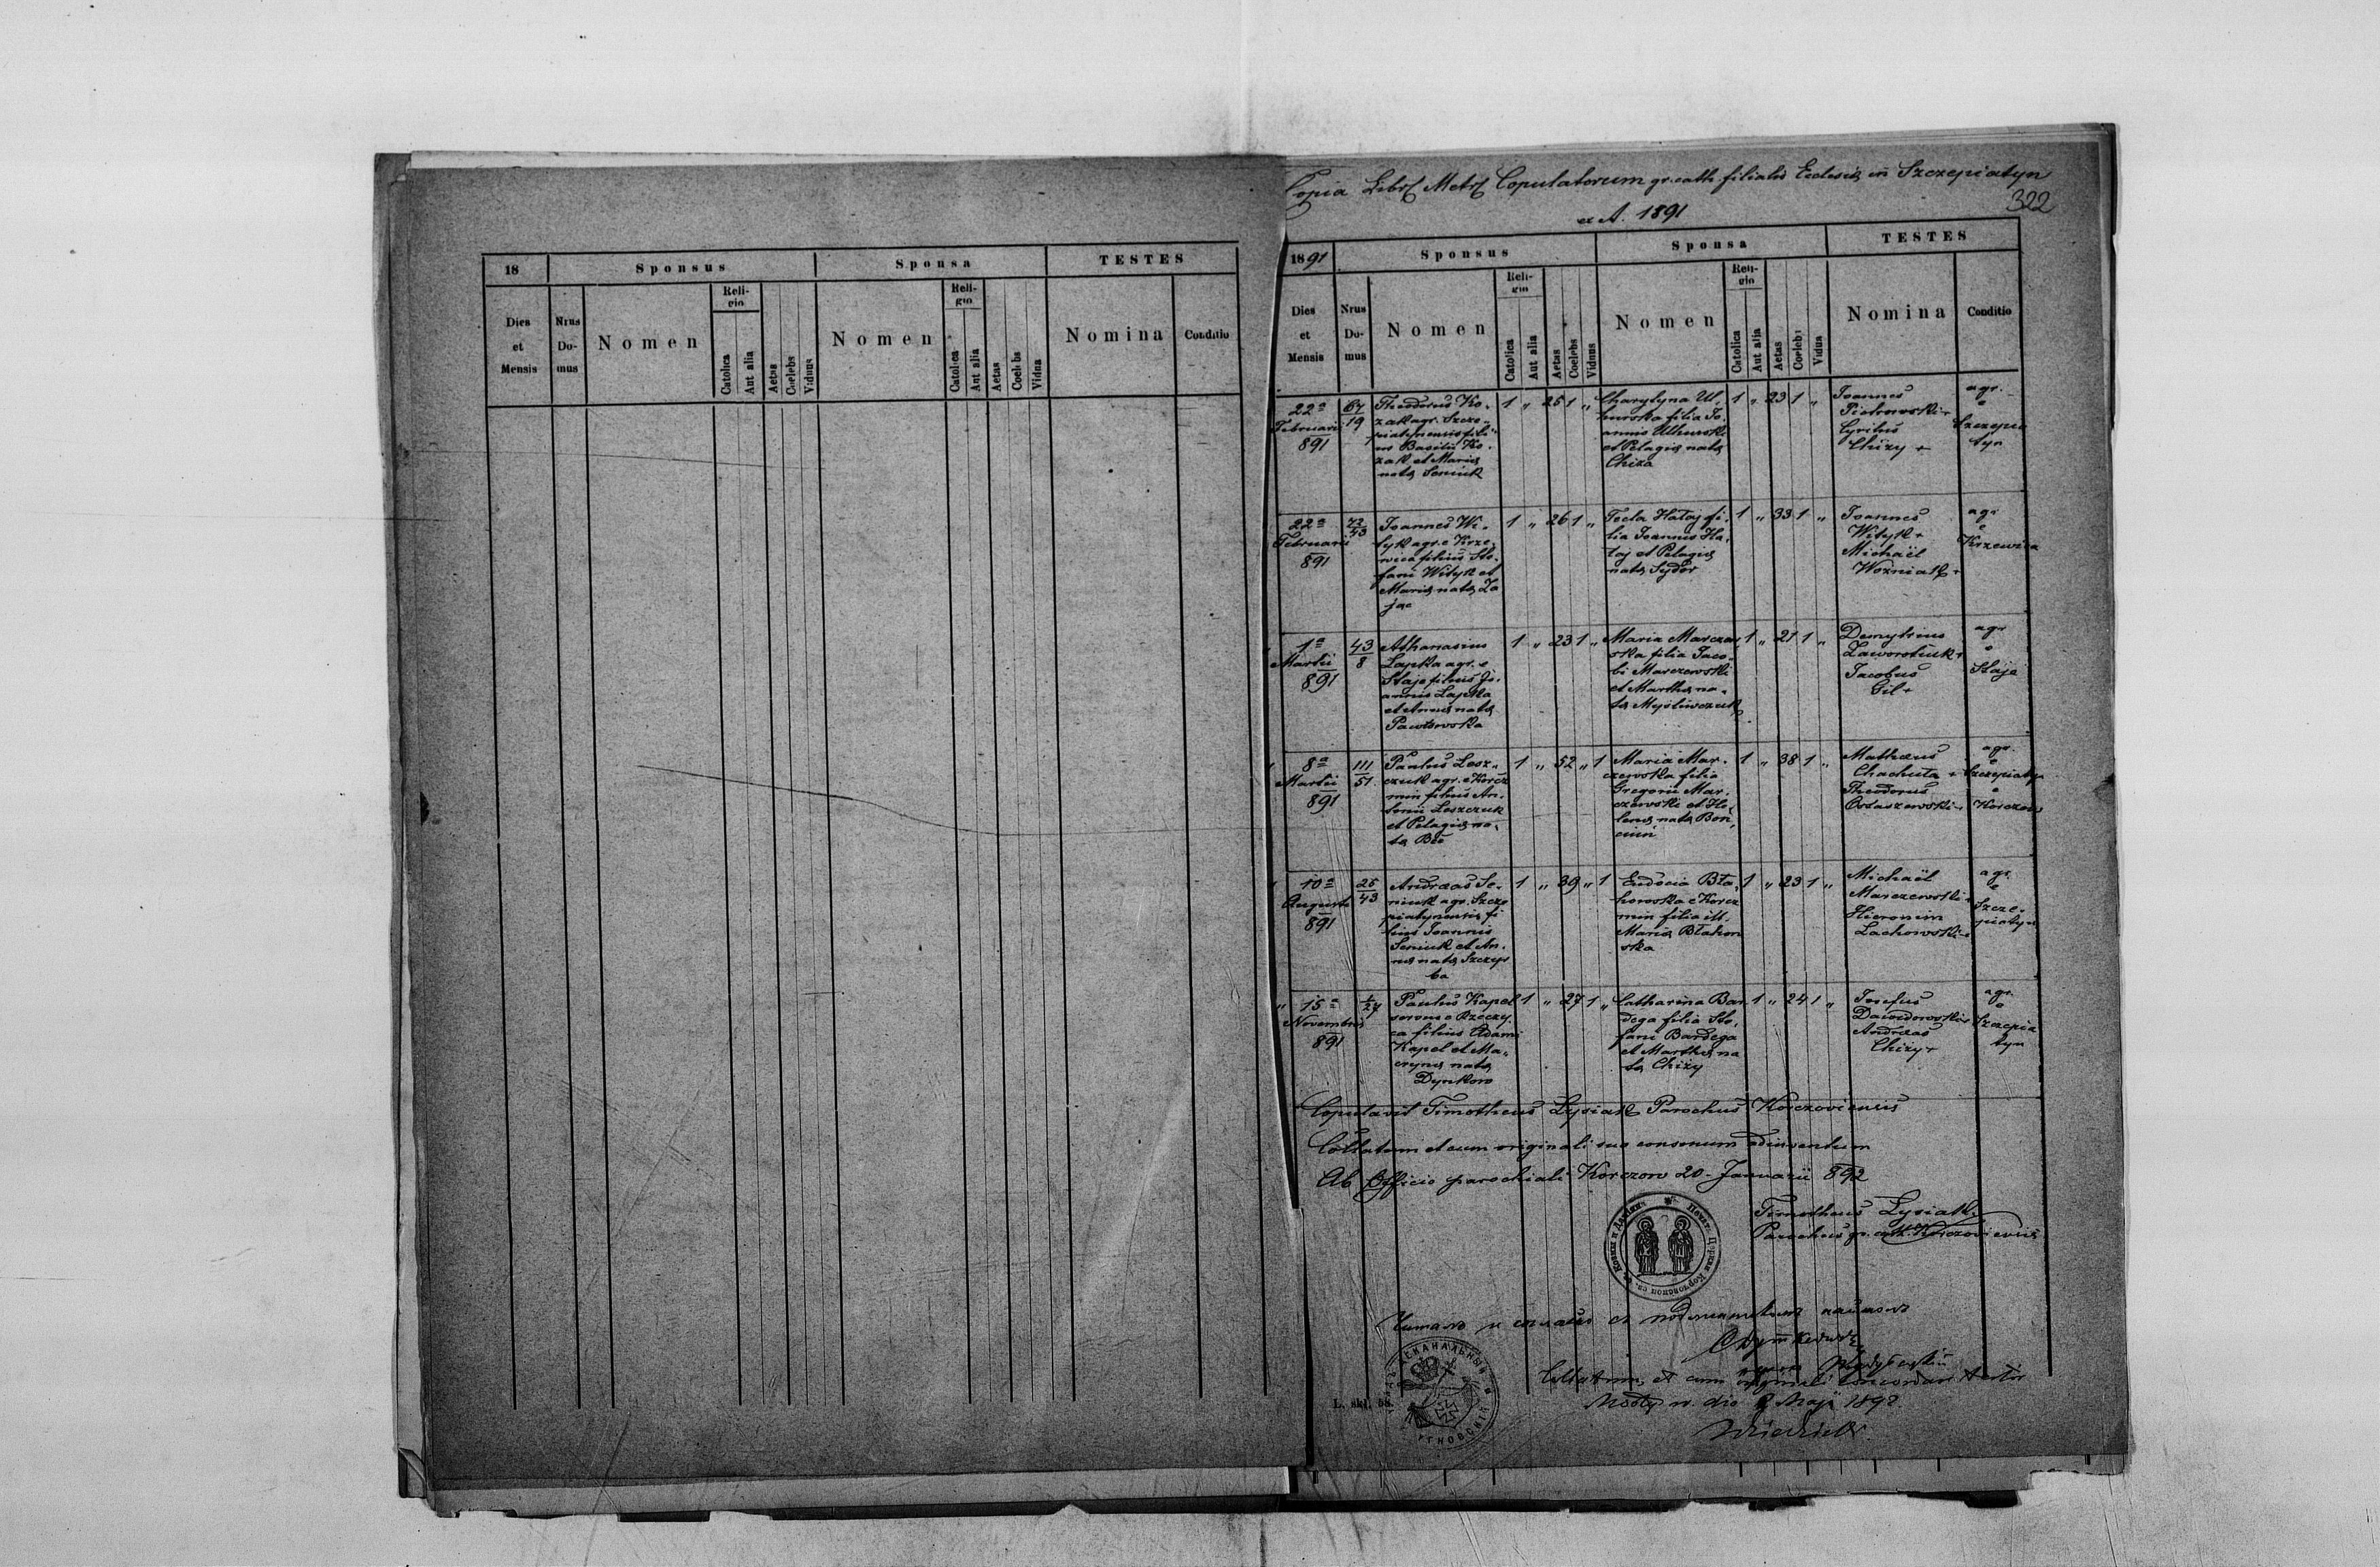 18
Sponsus
Sponsa
TESTES
Dies et Mensis
Nrus Domus
Nomen
Religio
Catolica
Aut alia
Aetas
Coelebs
Viduus
Nomen
Religio
Catolica
Aut alia
Aetas
Coelebs
Vidua
Nomina
Conditio
Copia Libri Metr Copulatorum gr. cath. filialis Ecclesiæ in Szczepiatyn
322
ex A. 1891
1891
Sponsus
Sponsa
TESTES
Dies et Mensis
Nrus Domus
Nomen
Religio
Catolica
Aut alia
Aetas
Coelebs
Viduus
Nomen
Religio
Catolica
Aut alia
Aetas
Coelebs
Vidua
Nomina
Conditio
22a
Februarii
891
67
19
Theodorus Ko-
zak agr. Szcze-
piatynensis fili-
us Basilii Ko-
zak et Mariæ
natæ Seniuk
1 „ 25 1 „
filia Jo-
annis
et Pelagiæ natæ
Chiza
1 „ 23 1 „
Joannes
Piotrowski +
Cyrilus
Chizy +
agr.
e
Szczepia
tyn
22a
Februarii
891
72
43
Joannes Wi-
tyk agr. e Krze-
wica filius Ste-
fani Wityk et
Mariæ natæ Za
jac
1 „ 26 1 „
Tecla Hataj fi-
lia Joannis Ha-
taj et Pelagiæ
natæ Sydor
1 „ 33 1 „
Joannes
Wityk +
Michaël
Woźniak +
agr
e
Krzewica
1a
Martii
891
43
8
Athanasius
Lapka agr. e
Staje filius Jo-
annis Lapka
et Annæ natæ
Pawłowska
1 „ 23 1 „
Maria Marczew
ska filia Jaco-
bi Marczewski
et Marthæ na-
tæ Myśliwczuk
1 „ 21 1 „
Demytrius
Zaworotiuk +
Jacobus
Gil +
agr
e
Staje
8a
Martii
891
111
51
Paulus Lesz-
czuk agr. e Korcz
min filius An-
tonii Leszczuk
et Pelagiæ na-
tæ
1 „ 52 „ 1
Maria Mar-
czewska filia
Gregorii Mar-
czewski et He-
lenæ natæ
1 „ 38 1 „
Mathæus
Chachuta +
Theodorus
Ostaszewski +
agr.
e
Szczepiatyn
e
Korczow
10a
Augusti
891
25
43
Andreas Se-
niuk agr. Szcze
piatynensis fi
lius Joannis
Seniuk et An-
næ natæ
1 „ 39 „ 1
Eudocia Bła-
howska e Korcz
min filia ill.
Mariæ Błahow
ska
1 „ 23 1 „
Michaël
Marczewski +
Hieronim
Lachowski +
agr.
e
Szcze-
piatyn
15a
Novembris
891
1
27
Paulus Kapel
servus e Rzeczy
ca filius Adami
Kapel et Ma-
crynæ natæ
Dynkow
1 „ 27 1 „
Catharina Bar
dega filia Ste-
fani Bardega
et Marthæ na
tæ Chizy
1 „ 24 1 „
Josefus
Dawidowski +
Andreas
Chizy +
agr.
e
Szczepia
tyn
Copulavit Timotheus Lysiak Parochus Korczoviensis
Collatum et cum originali suo consonum adinventum
Ab Officio parochiali Korczow 20 Januarii 892
Timotheus Lysiak
Parochus gr. cath. Korczoviensis
Collatum et cum originali
die Maji 1892